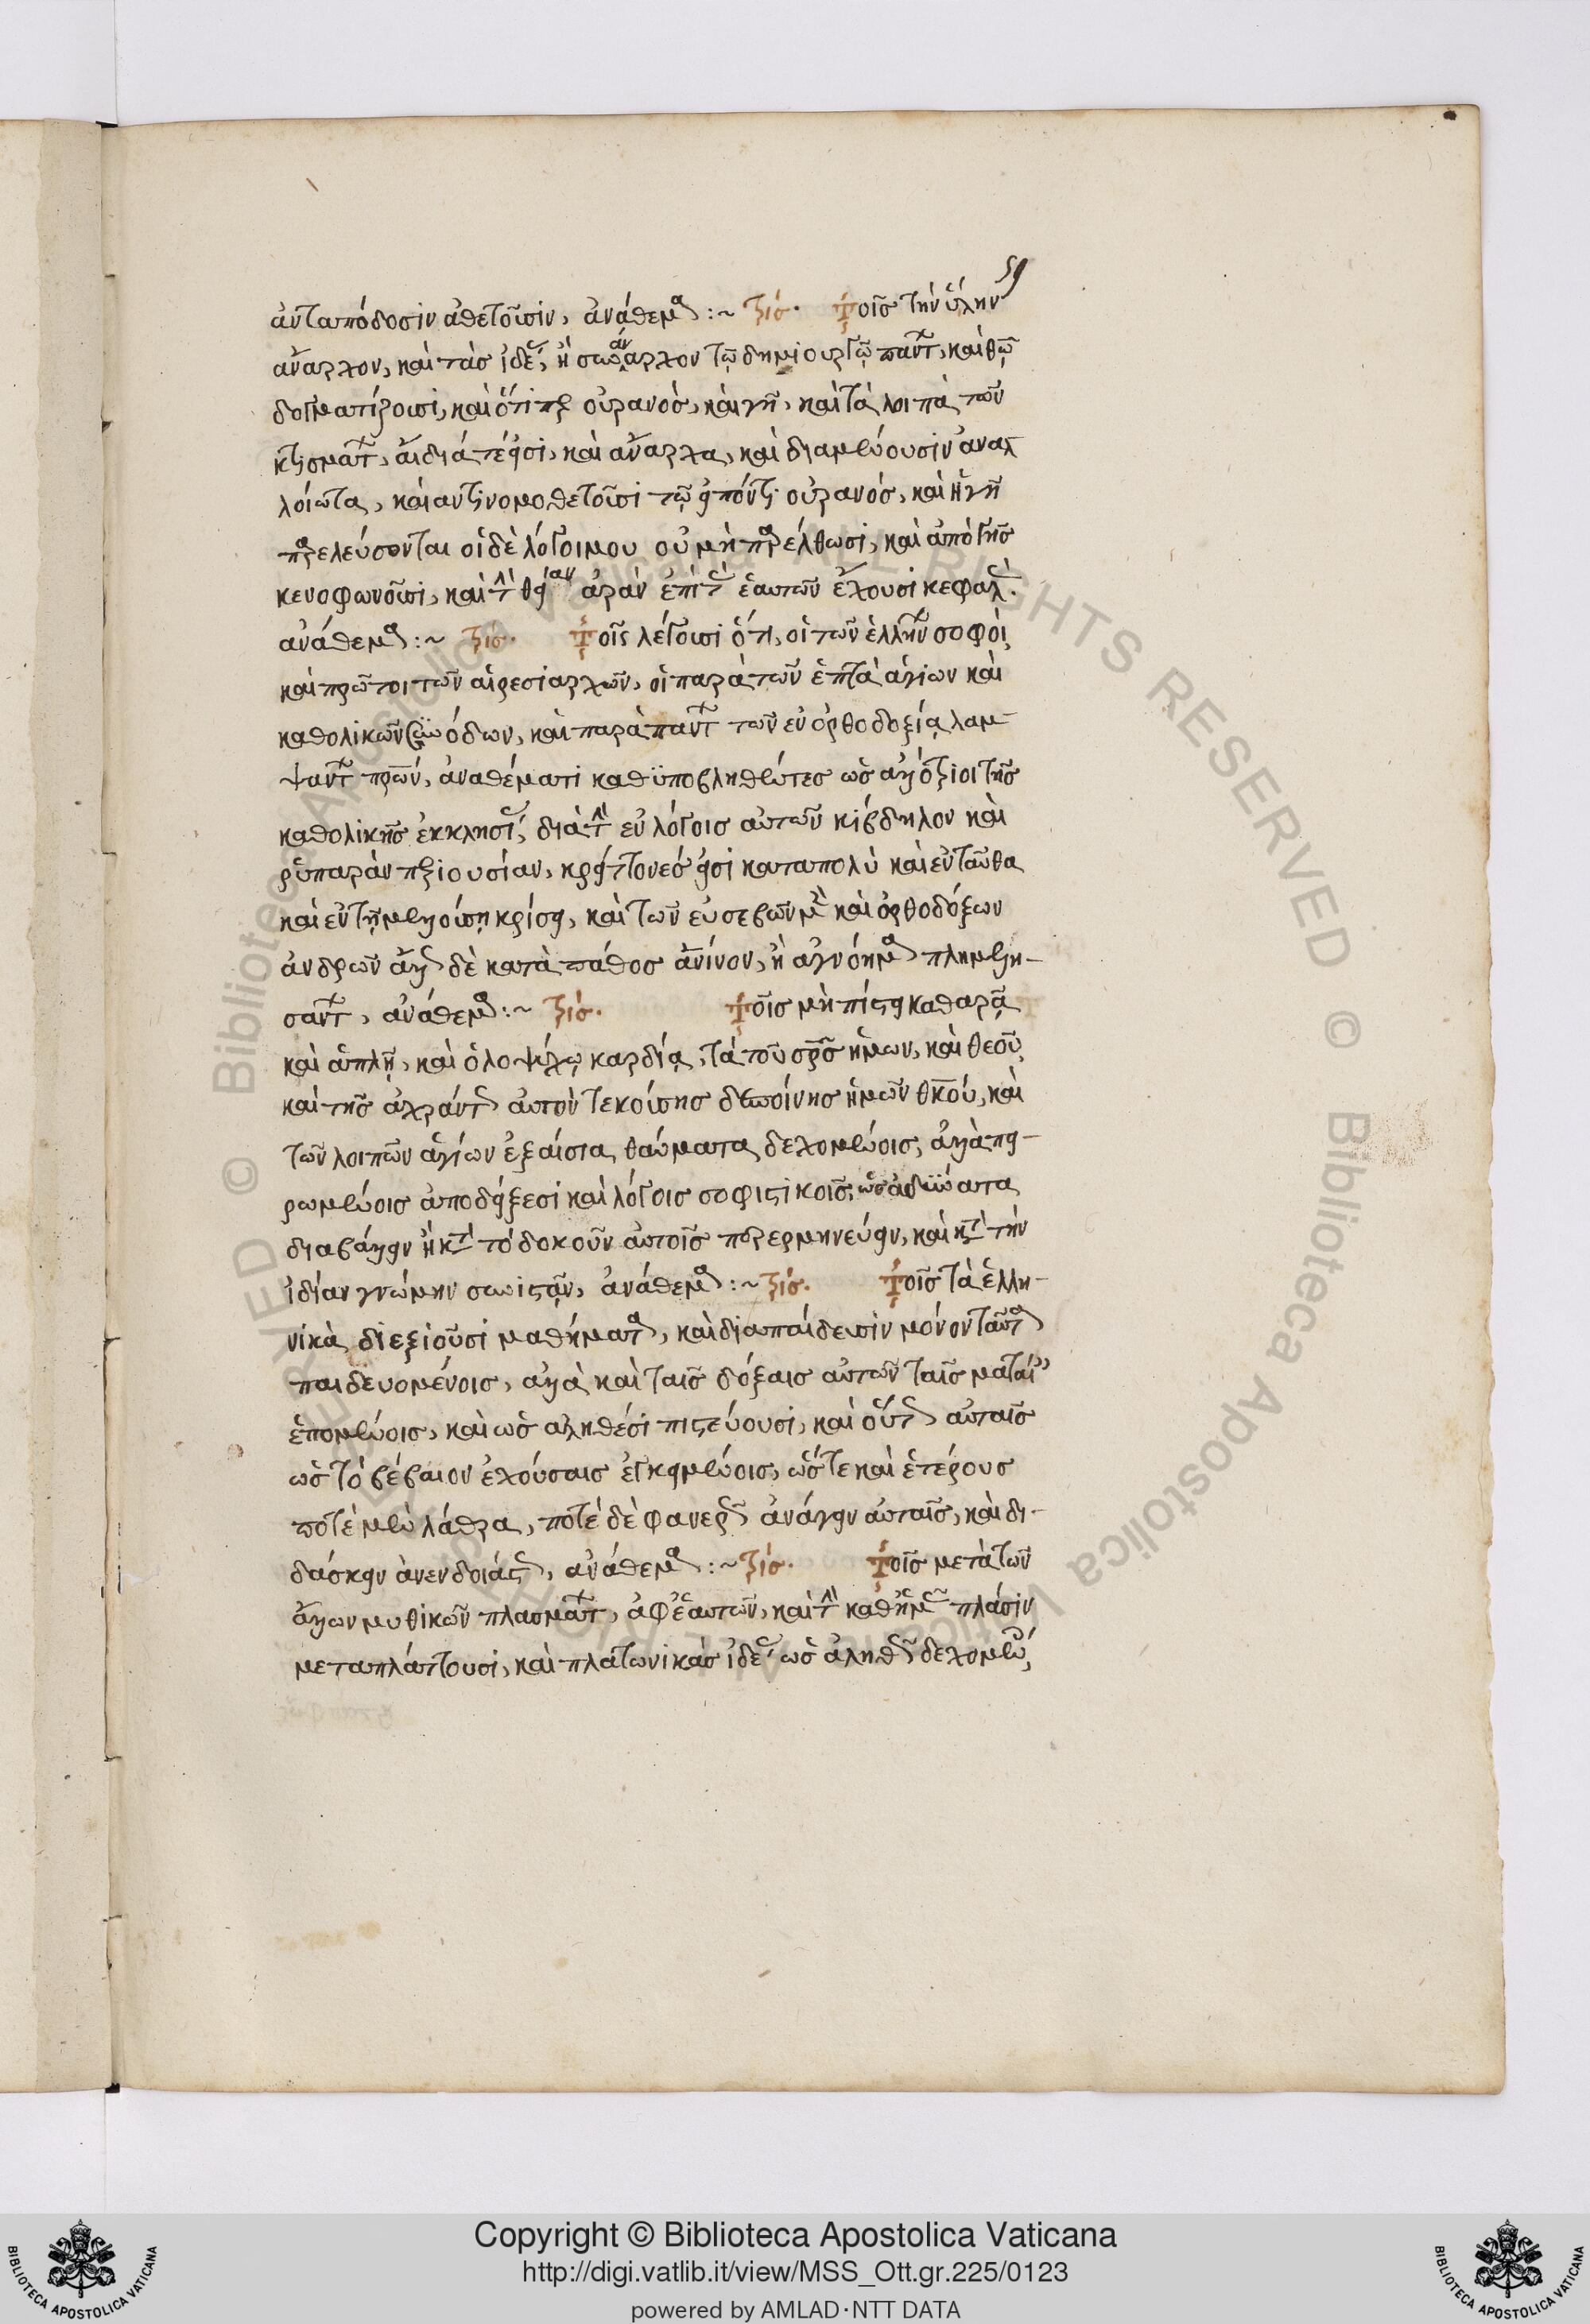 59
ἀνταπόδοσιν ἀθετοῦσιν, ἀνάθεμα :~ τρίς· τοῖς τὴν ὕλην
ἄναρχον, καὶ τὰς ἰδέας, ἢ συνάναρχον τῷ δημιουργῷ πάντων, καὶ θῷ
δογματίζουσι, καὶ ὅτιπερ οὐρανὸς, καὶ γῆ, καὶ τὰ λοιπὰ τῶν
κτισμάτων, ἀΐδιά τέ εἰσι, καὶ ἄναρχα, καὶ διαμένουσιν ἀναλ
λοίωτα, καὶ ἀντινομοθετοῦσι τῷ εἰπόντι οὐρανὸς, καὶ ἡ γῆ
παρελεύσονται οἱ δὲ λόγοι μου οὐ μὴ παρέλθωσι, καὶ ἀπὸ γῆς
κενοφωνοῦσι, καὶ τὴν θείαν ἀρὰν ἐπὶ τὰς ἑαυτῶν ἕλκουσι κεφαλὰς.
ἀνάθεμα :~ τρίς· τοῖς λέγουσι ὅτι, οἱ τῶν ἑλλήνων σοφοὶ,
καὶ πρῶτοι τῶν αἱρεσιαρχῶν, οἱ παρὰ τῶν ἑπτὰ ἁγίων καὶ
καθολικῶν συνόδων, καὶ παρὰ πάντων τῶν ἐν ὀρθοδοξίᾳ λαμ-
ψάντων πρων, ἀναθέματι καθϋποβληθέντες ὡς ἀλλότριοι τῆς
καθολικῆς ἐκκλησίας, διὰ τὴν ἐν λόγοις αὐτῶν κίβδηλον καὶ
ῥυπαρὰν περιουσίαν, κρείττονές εἰσι καταπολὺ καὶ ἐνταῦθα
καὶ ἐν τῇ μελλούσῃ κρίσει, καὶ τῶν εὐσεβῶν μὲν καὶ ὀρθοδόξων
ἀνδρῶν ἄλλως δὲ κατὰ πάθος ἀνίνον, ἢ ἀγνόημα πλημμελη-
σάντων, ἀνάθεμα :~ τρίς· τοῖς μὴ πίστει καθαρᾷ
καὶ ἁπλῇ, καὶ ὁλοψύχῳ καρδίᾳ, τὰ τοῦ σρς ἡμων, καὶ θεοῦ,
καὶ τῆς ἀχράντως αὐτὸν τεκούσης δεσποίνης ἡμῶν θκου, καὶ
τῶν λοιπῶν ἁγίων ἐξαίσια θαύματα δεχομένοις, ἀλλὰ πει-
ρωμένοις ἀποδείξεσι καὶ λόγοις σοφιστικοῖς, ὡς ἀδύνατα
διαβάλλειν ἢ κατὰ τὸ δοκοῦν αὐτοῖς παρερμηνεύειν, καὶ κατὰ τὴν
ἰδίαν γνώμην συνιστᾷν, ἀνάθεμα :~ τρίς· τοῖς τὰ ἑλλη-
νικὰ διεξιοῦσι μαθήματα, καὶ δια παίδευσιν μόνον ταῦτα
παιδευομένοις, ἀλλὰ καὶ ταῖς δόξαις αὐτῶν ταῖς ματαίαις
ἑπομένοις, καὶ ὡς ἀληθέσι πιστεύουσι, καὶ οὕτως αὐταῖς
ὡς τὸ βέβαιον ἐχούσαις ἐγκειμένοις, ὥστε καὶ ἑτέρους
ποτὲ μὲν λάθρα, ποτὲ δὲ φανερῶς ἀνάγειν αὐταῖς, καὶ δι-
δάσκειν ἀνενδοιάστως, ἀνάθεμα :~ τρίς· τοῖς μετὰ τῶν
ἄλλων μυθικῶν πλασμάτων, ἀφ' ἑαυτῶν, καὶ τὴν καθ' ἡμᾶς πλάσιν
μεταπλάττουσι, καὶ πλατωνικὰς ἰδέας ὡς ἀληθεῖς δεχομένοις,
Copyright © Biblioteca Apostolica Vaticana
http://digi.vatlib.it/view/MSS_Ott.gr.225/0123
powered by AMLAD·NTT DATA